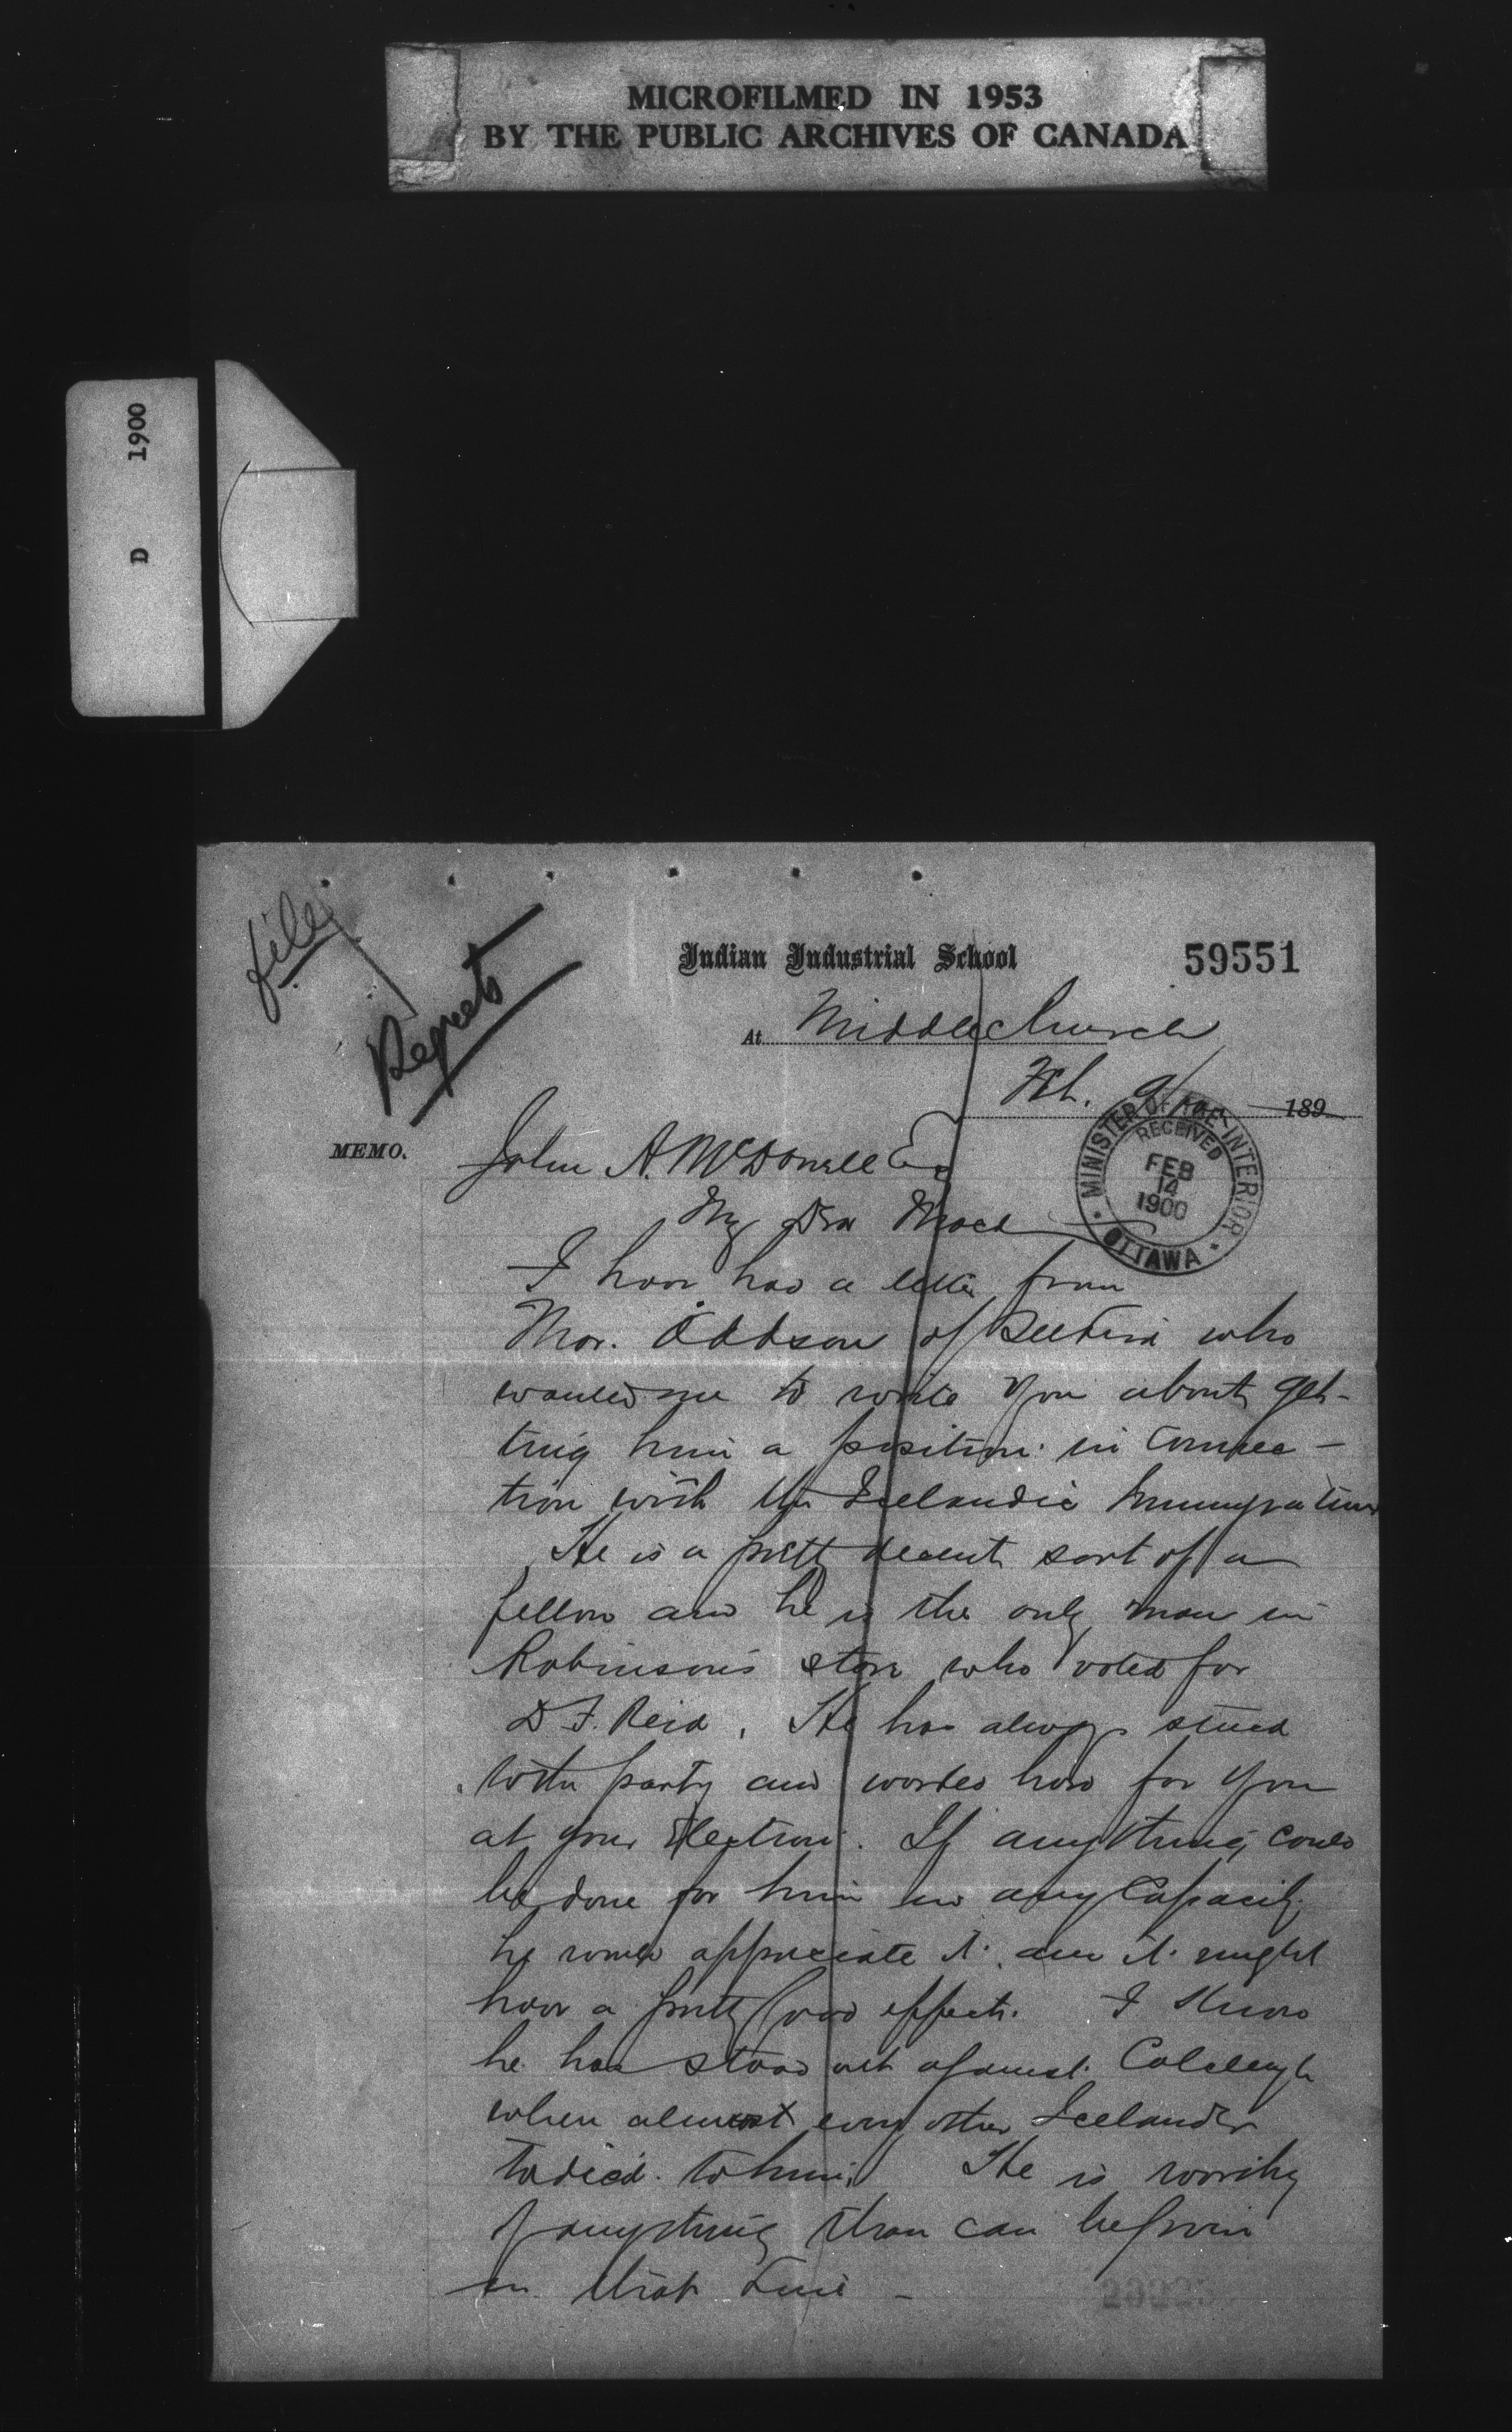 MICROFILMED IN 1953
BY THE PUBLIC ARCHIVES OF CANADA
D 1900
file
Regrets
Indian Industrial School
59551
At Middlechurch
Feb. 9/ 189
MINISTER OF THE INTERIOR
RECEIVED
FEB
14
1900
OTTAWA
MEMO.
John A. McDonell Esq
My Dear Mack
I have had a letter from
Mor. Oddson of Selkirk who
wanted me to write you about get-
ting him a position in connec-
tion with the Icelandic Immigration
He is a pretty decent sort of a
fellow and he is the only man in
Robinson's store who voted for
D F. Reid. He has always stuck
with party and worked hard for you
at your Election. If anything could
be done for him in any Capacity
he would appreciate it and it might
have a pretty good effect. I know
he has stood out against Colcleugh
when almost every other Icelander
to him. He is worthy
of anything that can be given
in that Line -